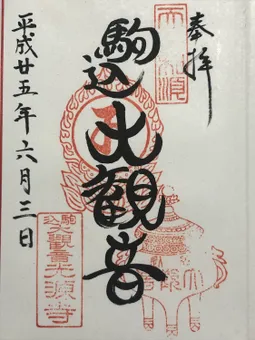 奉拝
駒込
大観音
平成廿五年六月三日
駒込
大觀音光源寺